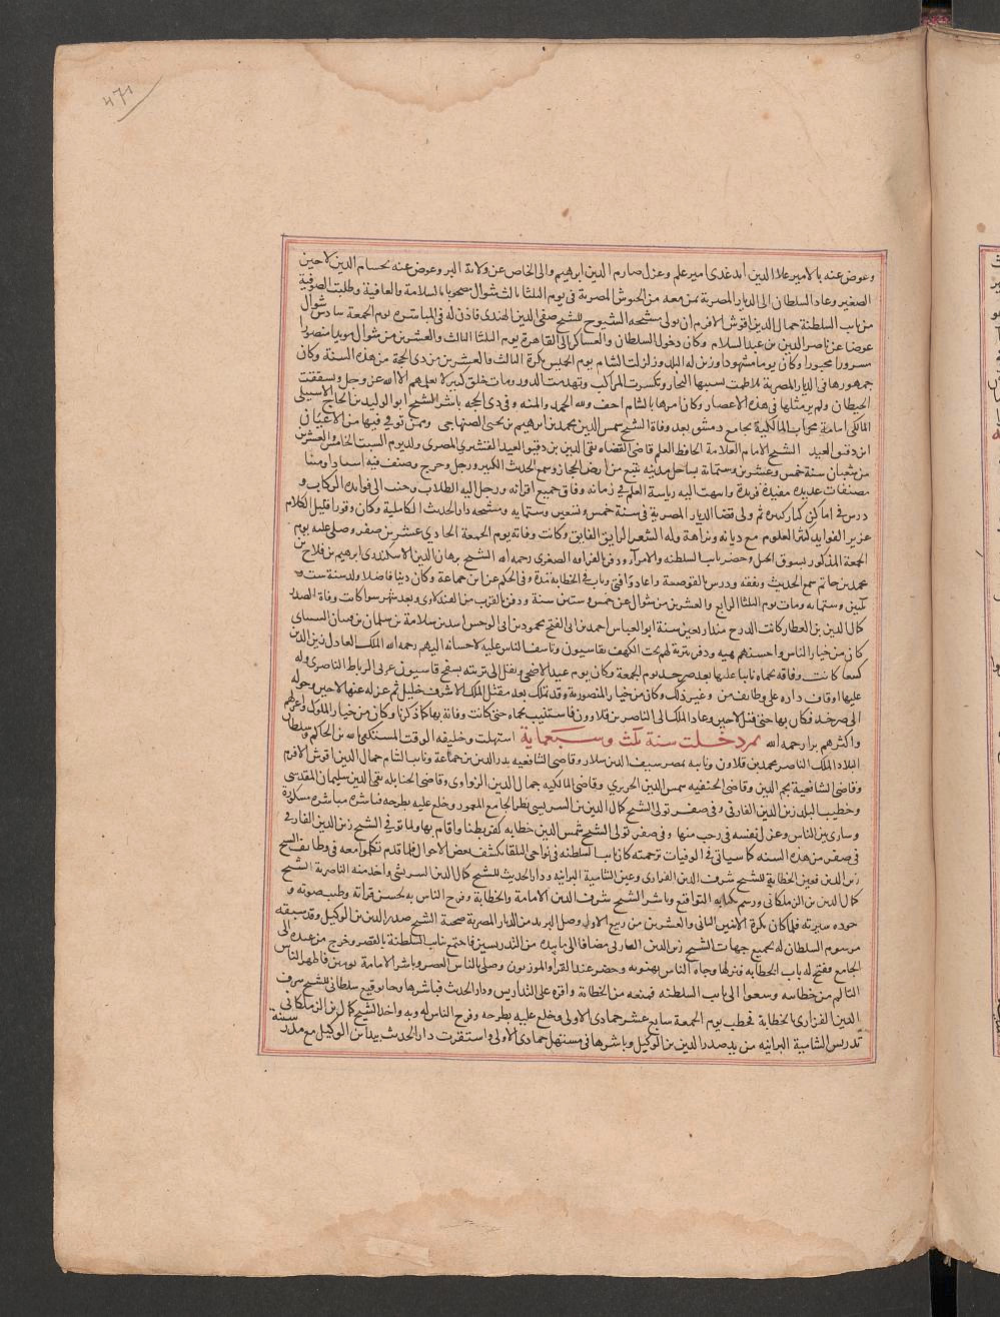 ٤٧١
وعوض عنه بالامير علا الدين ايدغدى امير علم وعزل صارم الدين ابرهيم والى الخاص عن ولاية البر وعوض عنه بحسام الدين لاجين
الصغير وعاد السلطان الى الديار المصرية بمن معه من الجيوش المصرية فى يوم الثلثا ثالث شوال مصحوبا بالسلامة والعافية وطلبت الصوفية
من نايب السلطنة جمال الدين اقوش الافرم ان يولى مشيخة الشيوخ للشيخ صفى الدين الهندى فاذن له فى المباشرة يوم الجمعة سادس شوال
عوضا عن ناصر الدين بن عبد السلام وكان دخول السلطان والعساكر الى القاهرة يوم الثلثا الثالث والعشرين من شوال مويدا منصورا
مسرورا محبورا وكان يوما مشهودا وزين له البلد وزلزلت الشام يوم الخميس بكرة الثالث والعشرين من ذى الحجة من هذه السنة وكان
جمهورها فى الديار المصرية تلاطمت بسببها البحار وتكسرت المراكب وتهدمت الدور ومات خلق كبير لا يعلمهم الا الله عز وجل وتشققت
الحيطان ولم ير مثلها فى هذه الاعصار وكان مرها بالشام اخف ولله الحمد والمنه وفى ذى الحجه باشر الشيخ ابو الوليد بن الحاج الاشبيلى
المالكى امامة محراب المالكية بجامع دمشق بعد وفاة الشيخ شمس الدين محمد بن ابرهيم بن يحيى الصنهاجى وممن توفى فيها من الاعيان
ابن دقيق العيد الشيخ الامام العلامة الحافظ العلم قاضى القضاه تقى الدين بن دقيق العيد القشيرى المصرى ولد يوم السبت الخامس والعشرين
من شعبان سنة خمس وعشرين وستماية بساحل مدينة ينبع من ارض الحجاز وسمع الحديث الكثير ورحل وخرج وصنف فيه اسنادا ومتنا
مصنفات عديده مفيدة فريدة وانتهت اليه رياسة العلم فى زمانه وفاق جميع اقرانه ورحل اليه الطلاب وحثت الى فوايده الركايب و
درس فى اماكن كثيرة ثم ولى قضا الديار المصرية فى سنة خمس وتسعين وستمايه ومشيخه دار الحديث الكاملية وكان وقورا قليل الكلام
غزير الفوايد كثير العلوم مع ديانه ونزاهة وله الشعر الرايق الفايق وكانت وفاته يوم الجمعة الحادي عشر من صفر وصلى عليه يوم
الجمعة المذكور بسوق الخيل وحضر نايب السلطنه والامرآ ودفن بالقرافه الصغرى رحمه الله الشيخ برهان الدين الاسكندرى ابرهيم بن فلاح بن
محمد بن حاتم سمع الحديث وتفقه ودرس بالقوصية واعاد وافتى وناب فى الخطابة مدة وفى الحكم عن ابن جماعة وكان دينا فاضلا ولد سنة ست و
ثلثين وستمايه ومات يوم الثلثا الرابع والعشرين من شوال عن خمس ستين سنة ودفن بالقرب من وبعد شهر سوا كانت وفاة الصدر
كال الدين بن العطار كاتب الدرج منذ اربعين سنة ابو العباس احمد بن ابى الفتح محمود بن ابى الوحش اسد بن سلامة بن سلمان بن فتيان الشيبانى
كان من خيار الناس واحسنهم هيه ودفن بتربة لهم تحت الكهف بقاسيون وتاسف الناس عليه لاحسانه اليهم رحمه الله الملك العادل زين الدين
كتبغا كانت وفاته بحماه نايبا عليها بعد صرخد يوم الجمعة وكان يوم عيد الاضحى ونقل الى تربته بسفح قاسيون غربى الرباط الناصرى وله
عليها اوقاف داره على وظايف من وغير ذلك وكان من خيار المنصورية وقد تملك بعد مقتل الملك الاشرف خليل ثم عزله عنها لاجين وحوله
الى صرخد فكان بها حتى قتل لاجين وعاد الملك الى الناصر بن قلاوون فاستنيب بحماه حتى كانت وفاته بها كما ذكرنا وكان من خيار الملوك واعدلهم
واكثرهم برا رحمه الله ثم دخلت سنة ثلث وسبعماية استهلت وخليفه الوقت المستكفى بالله بن الحاكم وسلطان
البلاد الملك الناصر محمد بن قلاون ونايبه بمصر سيف الدين سلار وقاضى الشافعيه بدر الدين بن جماعة ونايب الشام جمال الدين اقوش الافرم
وقاضى الشافعية نجم الدين وقاضى الحنفيه شمس الدين الحريرى وقاضى المالكيه جمال الدين الزواوى وقاضى الحنابله تقى الدين سليمان المقدسى
وخطيب البلد زين الدين الفارقى وفى صفر تولى الشيخ كال الدين بن الشريشى نظر الجامع المعمور وخلع عليه بطرحه فباشره مباشره مشكورة
وساوى بين الناس وعزل نفسه فى رجب منها وفى صفر تولى الشيخ شمس الدين خطابه كفر بطنا واقام بها ولما توفى الشيخ زين الدين الفارقى
فى صفر من هذه السنه كما سياتى فى الوفيات ترجمته كان نايب السلطنه فى نواحى البلقا يكشف بعض الاحوال فلما قدم تكلموا معه فى وظايف الشيخ
زين الدين فعين الخطابة للشيخ شرف الدين الفزارى وعين الشامية البرانيه ودار الحديث للشيخ كال الدين الشريشى واخذ منه الناصرية الشيخ
كال الدين بن الزملكانى ورسم بكتابه التواقيع وباشر الشيخ شرف الدين الامامة والخطابة وفرح الناس به لحسن قرآته وطيب صوته و
جوده سيرته فلما كان بكرة الاثنين الثانى والعشرين من ربيع الاول وصل البريد من الديار المصرية صحبة الشيخ صدر الدين بن الوكيل وقد سبقه
مرسوم السلطان له بجميع جهات الشيخ زين الدين الفارقى مضافا الى ما بيده من التدريس فاجتمع بنايب السلطنة بالقصر وخرج من عنده الى
الجامع وفتح له باب الخطابه فنزلها وجاه الناس يهنونه وحضر عنده القرآ والموذنون وصلى بالناس العصر وباشر الامامة يومين فاظهر الناس
التالم من خطابته وسعوا الى نايب السلطنه فمنعه من الخطابة واقره على التداريس ودار الحديث فباشرها وجا توقيع سلطانى للشيخ شرف
الدين الفزارى بالخطابة فخطب يوم الجمعة سابع عشر جمادى الاولى وخلع عليه بطرحه وفرح الناس به واخذ الشيخ كال بن الزملكانى
تدريس الشامية البرانيه من يد صدر الدين بن الوكيل وباشرها فى مستهل جمادى الاولى واستقرت دار الحديث بيد ابن الوكيل مع مدرسته